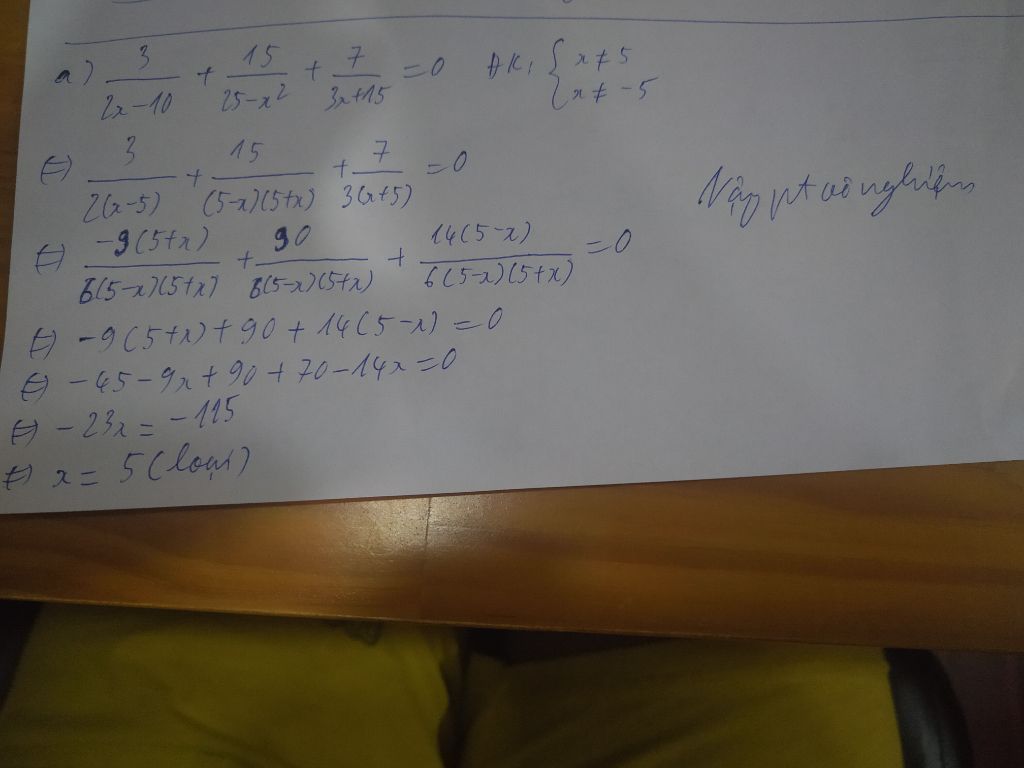 a) 3/(2x-10) + 15/(25-x²) + 7/(3x+15) = 0 ĐK: { x ≠ 5
x ≠ -5
⇔ 3/(2(x-5)) + 15/((5-x)(5+x)) + 7/(3(x+5)) = 0
Vậy pt vô nghiệm
⇔ -9(5+x)/(6(5-x)(5+x)) + 90/(6(5-x)(5+x)) + 14(5-x)/(6(5-x)(5+x)) = 0
⇔ -9(5+x) + 90 + 14(5-x) = 0
⇔ -45 - 9x + 90 + 70 - 14x = 0
⇔ -23x = -115
⇔ x = 5 (loại)